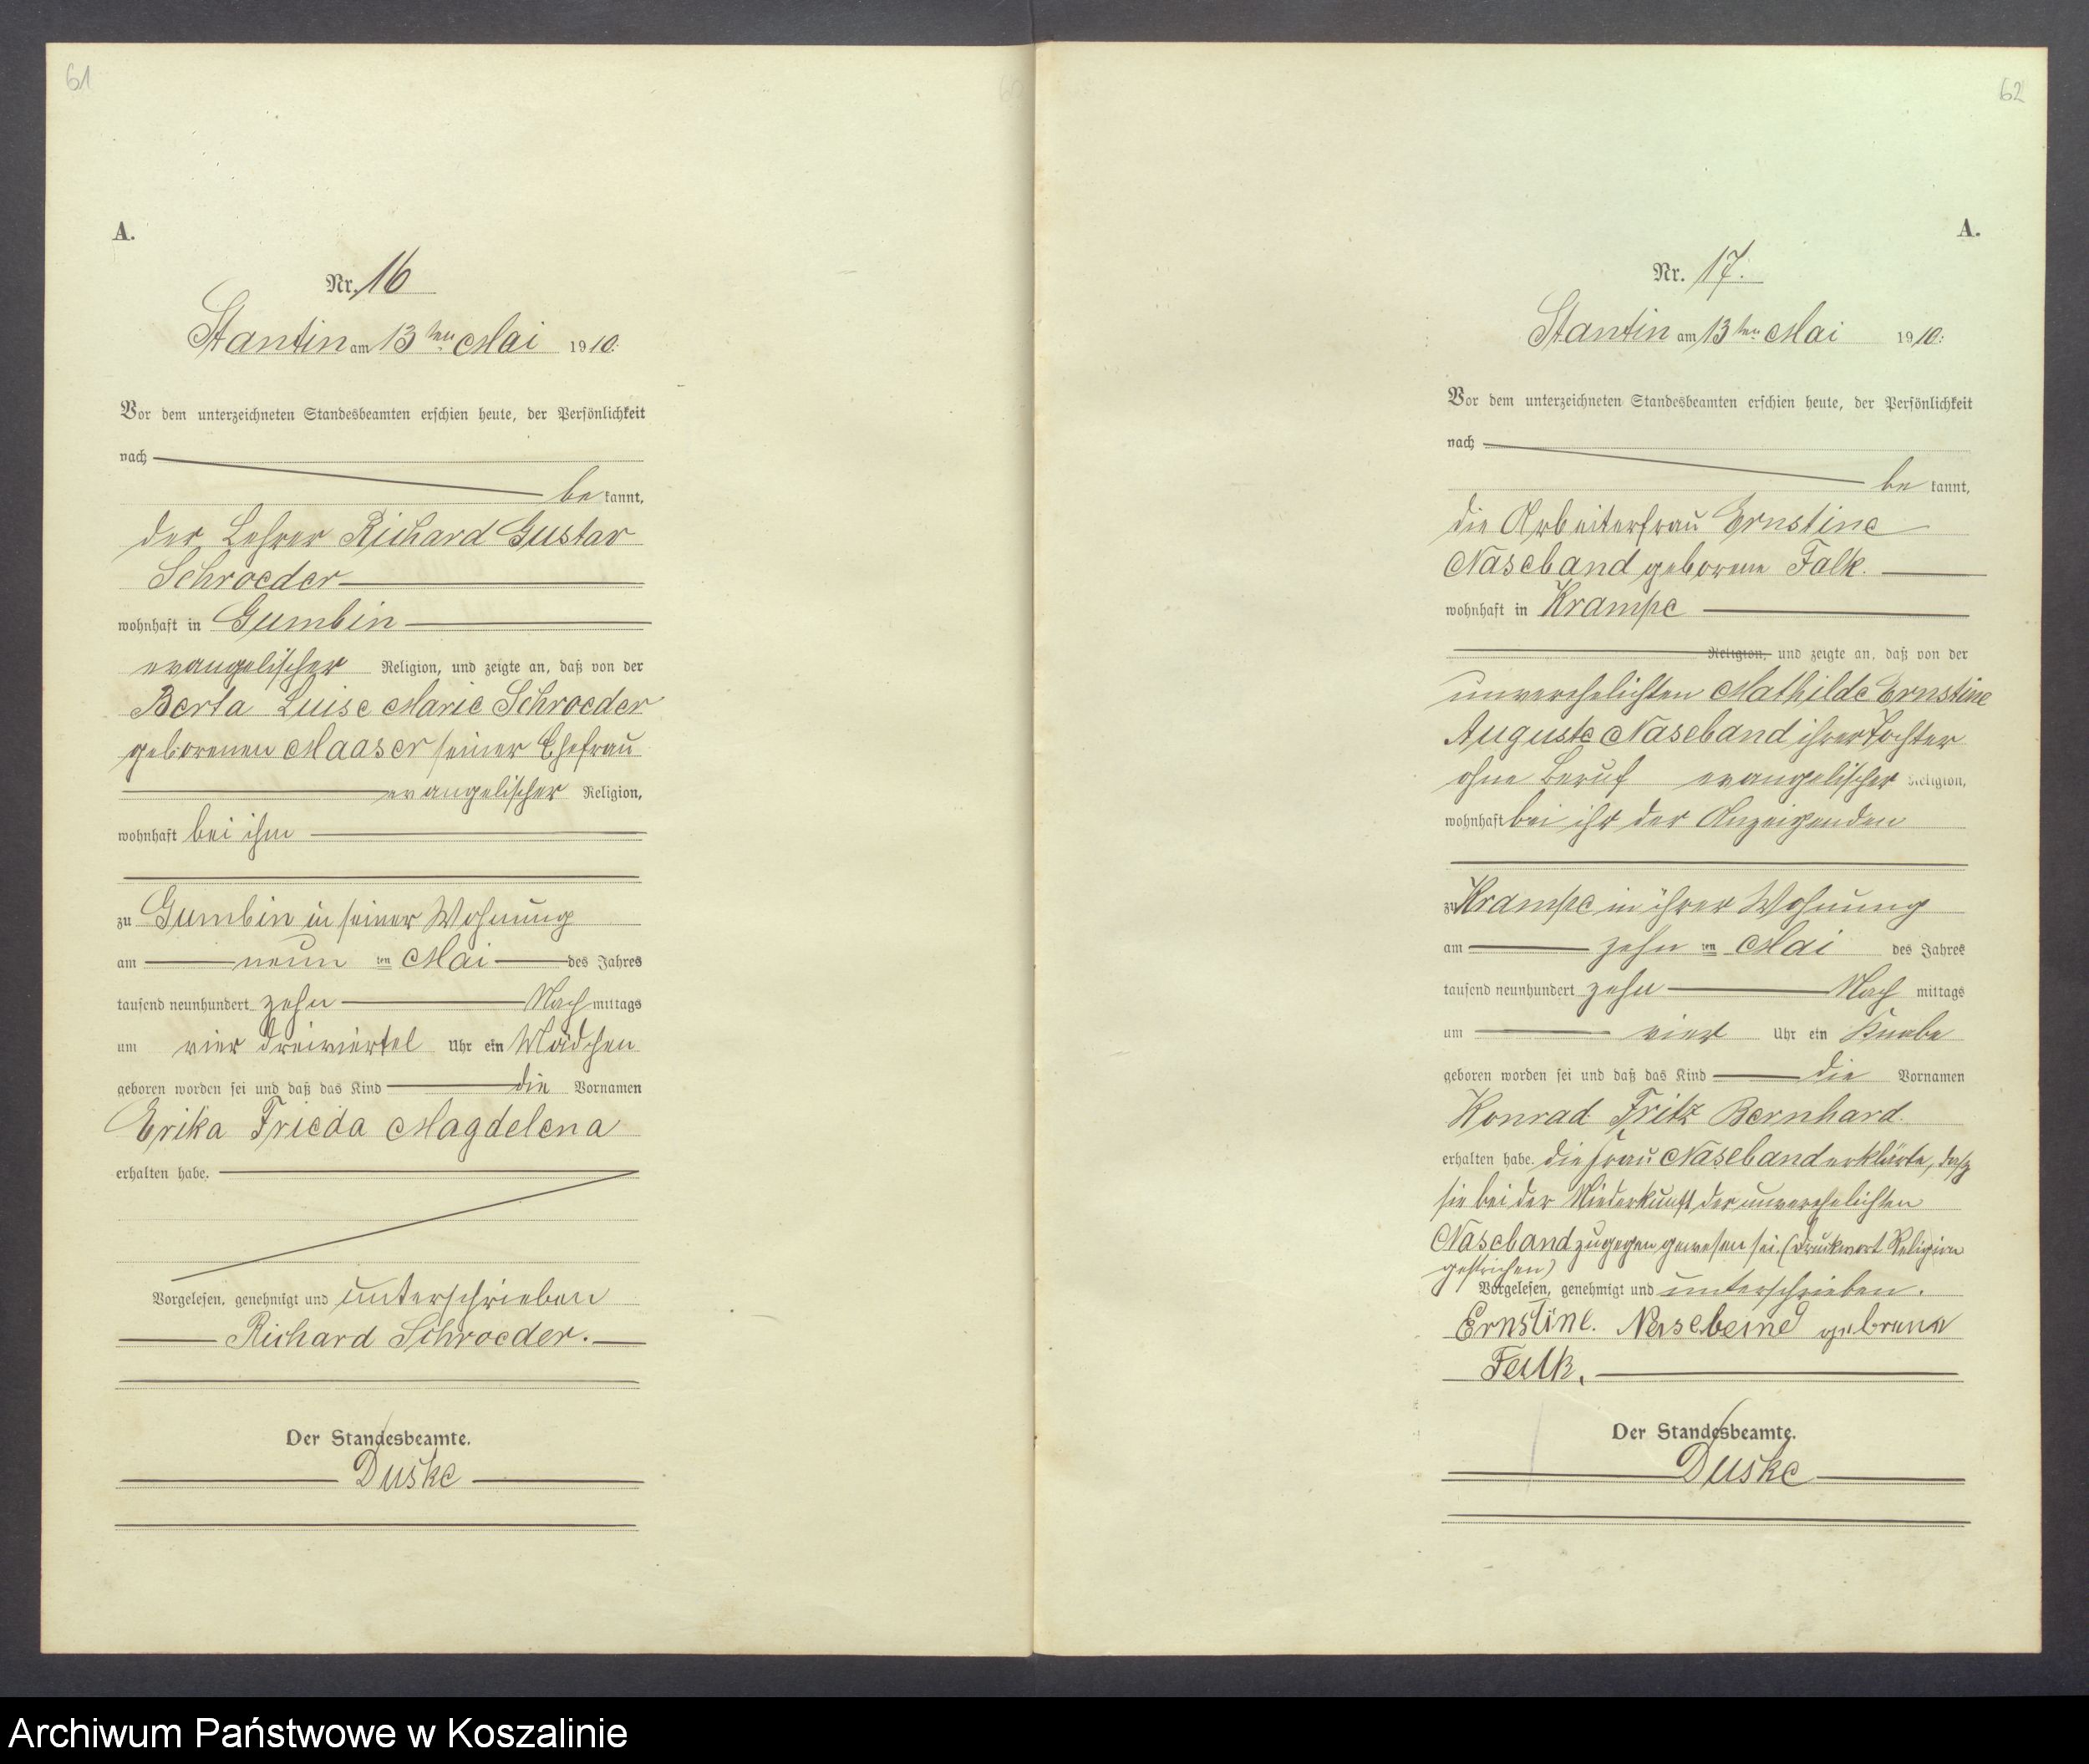 61
A.
Nr. 16
Stantin am 13ten Mai 1910.
Vor dem unterzeichneten Standesbeamten erschien heute, der Persönlichkeit
nach
be kannt,
der Lehrer Richard Gustav
Schroeder
wohnhaft in Gumbin
evangelischer Religion, und zeigte an, daß von der
Berta Luise Marie Schroeder
geborenen Maaser seiner Ehefrau
evangelischer Religion,
wohnhaft bei ihm
zu Gumbin in seiner Wohnung
am neun ten Mai des Jahres
tausend neunhundert zehn Nach mittags
um vier dreiviertel Uhr ein Mädchen
geboren worden sei und daß das Kind die Vornamen
Erika Frieda Magdelena
erhalten habe.
Vorgelesen, genehmigt und unterschrieben
Richard Schroeder.
Der Standesbeamte.
Duske
62
A.
Nr. 17.
Stantin am 13ten Mai 1910.
Vor dem unterzeichneten Standesbeamten erschien heute, der Persönlichkeit
nach
be kannt,
die Arbeiterfrau Ernstine
Naseband geborene Falk.
wohnhaft in Krampe
Religion, und zeigte an, daß von der
unverehelichten Mathilde Ernstine
Auguste Naseband ihrer Tochter
ohne Beruf evangelischer Religion,
wohnhaft bei ihr der Anzeigenden
zu Krampe in ihrer Wohnung
am zehn ten Mai des Jahres
tausend neunhundert zehn Nach mittags
um vier Uhr ein Knabe
geboren worden sei und daß das Kind die Vornamen
Konrad Fritz Bernhard.
erhalten habe. die Frau Naseband erklärte, daß
sie bei der Niederkunft der unverehelichten
Naseband zugegen gewesen sei. (Druckwort Religion
gestrichen)
Vorgelesen, genehmigt und unterschrieben.
Ernstine. Nasebend gebrene
Falk.
Der Standesbeamte.
Duske
Archiwum Państwowe w Koszalinie